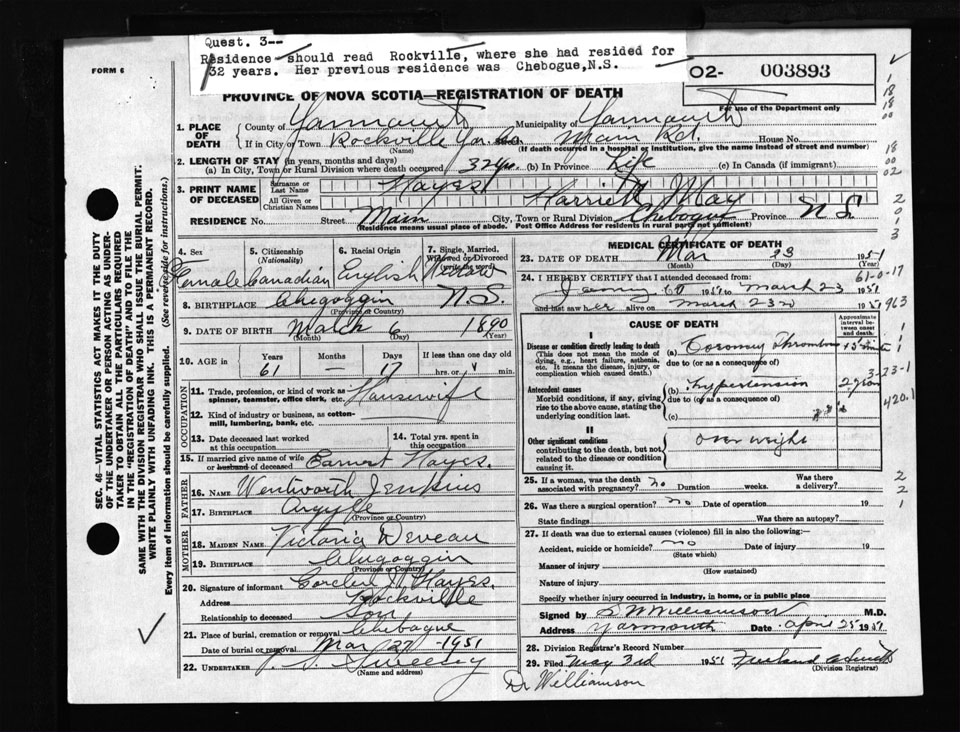 Quest. 3--
Residence should read Rockville, where she had resided for
32 years. Her previous residence was Chebogue,N.S.
FORM 6
O2- 003893
For use of the Department only
PROVINCE OF NOVA SCOTIA—REGISTRATION OF DEATH
1. PLACE OF DEATH
County of Yarmouth Municipality of Yarmouth
If in City or Town Rockville Yar. Co. Main Rd. House No.
(Name) (If death occurred in a hospital or institution, give the name instead of street and number)
2. LENGTH OF STAY (in years, months and days)
(a) In City, Town or Rural Division where death occurred 32 yrs (b) In Province Life (c) In Canada (if immigrant)
3. PRINT NAME OF DECEASED
Surname or Last Name Hayes
All Given or Christian Names Harriett May
RESIDENCE No. Street Main City, Town or Rural Division Chebogue Province N.S.
(Residence means usual place of abode. Post Office Address for residents in rural parts not sufficient)
4. Sex Female
5. Citizenship (Nationality) Canadian
6. Racial Origin English
7. Single, Married, Widowed or Divorced (write the word) Widow
8. BIRTHPLACE Chegoggin N.S.
(Province or Country)
9. DATE OF BIRTH March 6 1890
(Month) (Day)
10. AGE in Years Months Days If less than one day old
61 — 17 hrs. or min.
OCCUPATION
11. Trade, profession, or kind of work as spinner, teamster, office clerk, etc. Housewife
12. Kind of industry or business, as cotton-mill, lumbering, bank, etc.
13. Date deceased last worked at this occupation
14. Total yrs. spent in this occupation
15. If married give name of wife or husband of deceased Earnest Hayes.
FATHER
16. NAME Wentworth Jenkins
17. BIRTHPLACE Argyle
(Province or Country)
MOTHER
18. MAIDEN NAME Victoria Deveau
19. BIRTHPLACE Chegoggin
(Province or Country)
20. Signature of informant Hayes.
Address Rockville
Relationship to deceased Son
21. Place of burial, cremation or removal Chebogue
Date of burial or removal Mar 27 -1951
22. UNDERTAKER Sweeny
(Name and address)
MEDICAL CERTIFICATE OF DEATH
23. DATE OF DEATH Mar 23 1951
(Month) (Day)
24. I HEREBY CERTIFY that I attended deceased from
1951 to March 23 1951
and last saw her alive on March 23rd 1951
61-0-17
963
CAUSE OF DEATH
Approximate interval between onset and death.
I
Disease or condition directly leading to death
(This does not mean the mode of dying, e.g., heart failure, asthenia, etc. It means the disease, injury, or complication which caused death.)
(a) Coronary Thrombosis
due to (or as a consequence of)
Antecedent causes
Morbid conditions, if any, giving rise to the above cause, stating the underlying condition last.
(b) hypertension 2 years
due to (or as a consequence of)
(c)
3-23-1
420.1
II
Other significant conditions
contributing to the death, but not related to the disease or condition causing it.
Over weight
25. If a woman, was the death associated with pregnancy? no Duration weeks. Was there a delivery?
26. Was there a surgical operation? no Date of operation 19
State findings Was there an autopsy?
27. If death was due to external causes (violence) fill in also the following:
Accident, suicide or homicide? no Date of injury 19
(State which)
Manner of injury
(How sustained)
Nature of injury
Specify whether injury occurred in industry, in home, or in public place
Signed by Williamson M.D.
Address Yarmouth Date April 25 1951
28. Division Registrar's Record Number
29. Filed May 3rd 1951
(Division Registrar)
Dr Williamson
SEC. 46—VITAL STATISTICS ACT MAKES IT THE DUTY
OF THE UNDERTAKER OR PERSON ACTING AS UNDER-
TAKER TO OBTAIN ALL THE PARTICULARS REQUIRED
IN THE "REGISTRATION OF DEATH" AND TO FILE THE
SAME WITH THE DIVISION REGISTRAR WHO SHALL ISSUE THE BURIAL PERMIT.
WRITE PLAINLY WITH UNFADING INK. THIS IS A PERMANENT RECORD.
Every item of information should be carefully supplied. (See reverse side for instructions.)